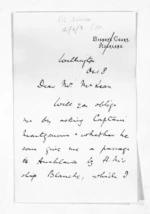 Wellington
Dear Mr McLean
Will you oblige
me by asking Captain
Montgomerie whether he
can give me a passage
to Auckland by H.M.'s
ship Blanche, which I